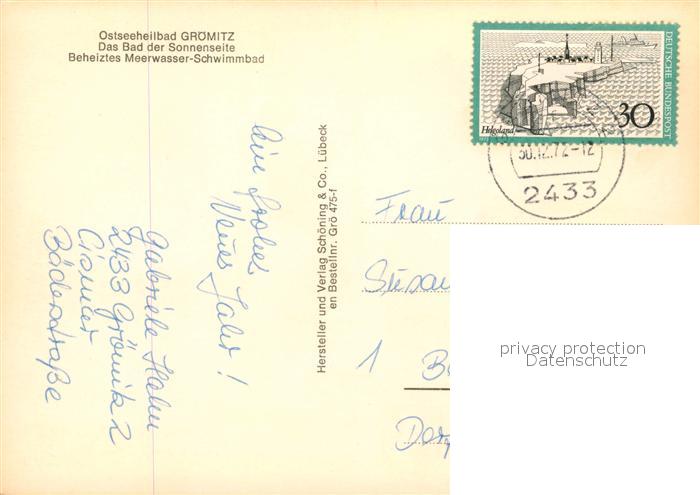 Ostseeheilbad GRÖMITZ
Das Bad der Sonnenseite
Beheiztes Meerwasser-Schwimmbad
DEUTSCHE BUNDESPOST
Helgoland
30
30.12.72-12
2433
Ein frohes
Neues Jahr!
Gabriele Hahn
2433 Grömitz 2
Cismar
Bäderstraße
Hersteller und Verlag Schöning & Co., Lübeck
en Bestellnr. Grö 475-f
Frau
Susan
1 Be
privacy protection
Datenschutz